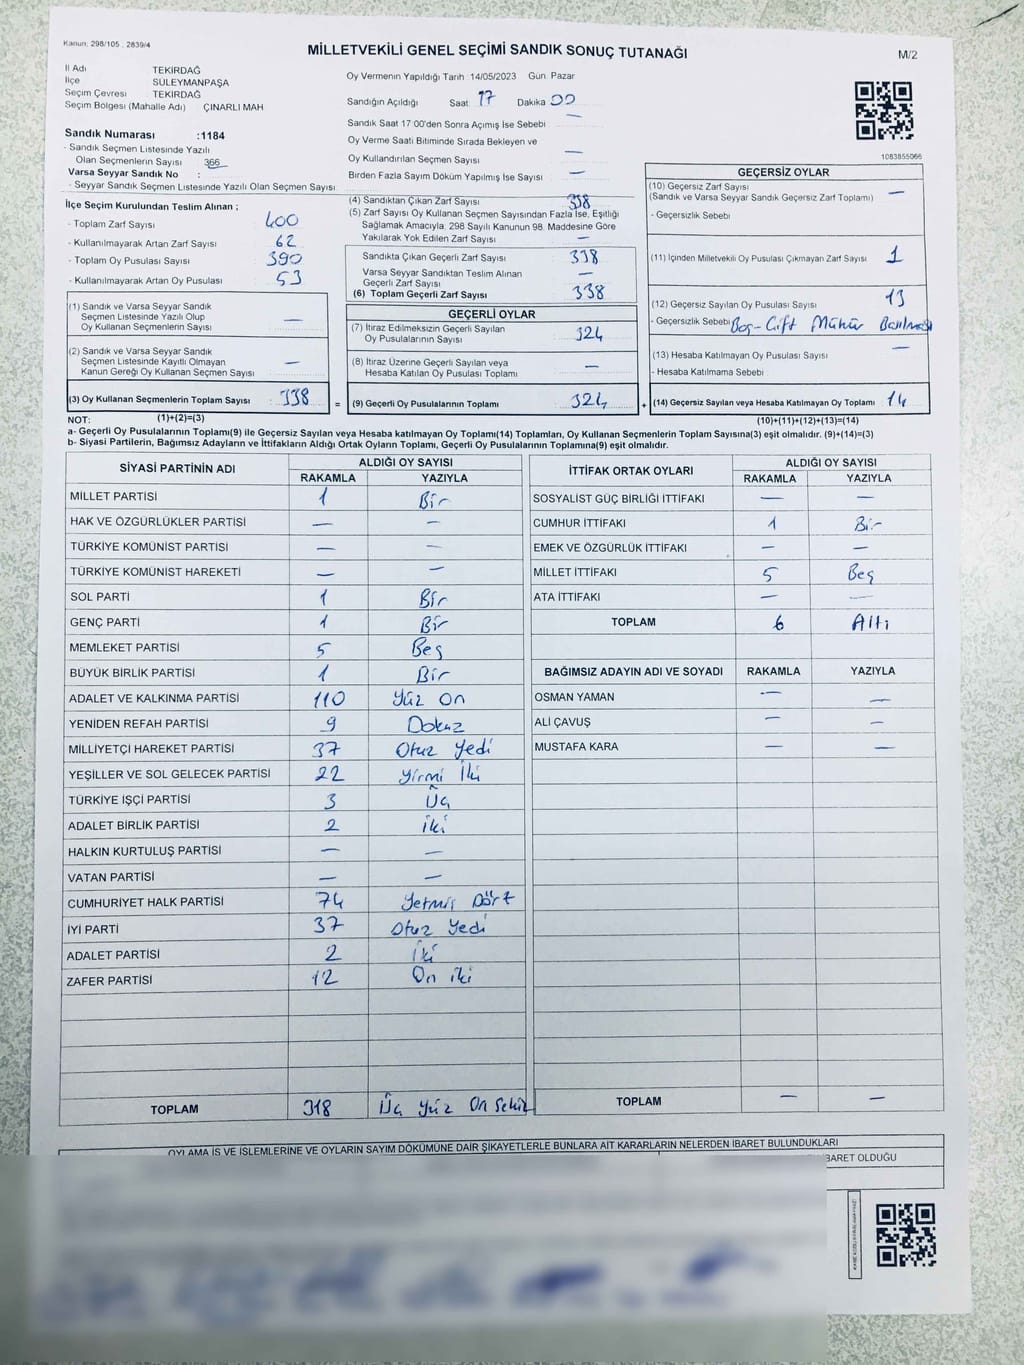 Kanun; 298/105 , 2839/4
MİLLETVEKİLİ GENEL SEÇİMİ SANDIK SONUÇ TUTANAĞI
M/2
İl Adı TEKİRDAĞ
İlçe SÜLEYMANPAŞA
Seçim Çevresi TEKİRDAĞ
Seçim Bölgesi (Mahalle Adı) ÇINARLI MAH
Sandık Numarası :1184
- Sandık Seçmen Listesinde Yazılı
Olan Seçmenlerin Sayısı 366
Varsa Seyyar Sandık No :
- Seyyar Sandık Seçmen Listesinde Yazılı Olan Seçmen Sayısı
Oy Vermenin Yapıldığı Tarih :14/05/2023 Gün: Pazar
Sandığın Açıldığı Saat 17 Dakika 00
Sandık Saat 17:00'den Sonra Açımış İse Sebebi —
Oy Verme Saati Bitiminde Sırada Bekleyen ve
Oy Kullandırılan Seçmen Sayısı —
Birden Fazla Sayım Döküm Yapılmış İse Sayısı —
1083855066
İlçe Seçim Kurulundan Teslim Alınan ;
- Toplam Zarf Sayısı 400
- Kullanılmayarak Artan Zarf Sayısı 62
- Toplam Oy Pusulası Sayısı 390
- Kullanılmayarak Artan Oy Pusulası 53
(1) Sandık ve Varsa Seyyar Sandık
Seçmen Listesinde Yazılı Olup
Oy Kullanan Seçmenlerin Sayısı —
(2) Sandık ve Varsa Seyyar Sandık
Seçmen Listesinde Kayıtlı Olmayan
Kanun Gereği Oy Kullanan Seçmen Sayısı —
(3) Oy Kullanan Seçmenlerin Toplam Sayısı : 338
(1)+(2)=(3)
(4) Sandıktan Çıkan Zarf Sayısı 338
(5) Zarf Sayısı Oy Kullanan Seçmen Sayısından Fazla İse, Eşitliği
Sağlamak Amacıyla, 298 Sayılı Kanunun 98. Maddesine Göre
Yakılarak Yok Edilen Zarf Sayısı —
Sandıkta Çıkan Geçerli Zarf Sayısı 338
Varsa Seyyar Sandıktan Teslim Alınan
Geçerli Zarf Sayısı —
(6) Toplam Geçerli Zarf Sayısı 338
GEÇERLİ OYLAR
(7) İtiraz Edilmeksizin Geçerli Sayılan
Oy Pusulalarının Sayısı 324
(8) İtiraz Üzerine Geçerli Sayılan veya
Hesaba Katılan Oy Pusulası Toplamı —
= (9) Geçerli Oy Pusulalarının Toplamı 324
GEÇERSİZ OYLAR
(10) Geçersiz Zarf Sayısı —
(Sandık ve Varsa Seyyar Sandık Geçersiz Zarf Toplamı)
- Geçersizlik Sebebi
(11) İçinden Milletvekili Oy Pusulası Çıkmayan Zarf Sayısı 1
(12) Geçersiz Sayılan Oy Pusulası Sayısı 13
- Geçersizlik Sebebi Boş-Çift Mühür Basılması
(13) Hesaba Katılmayan Oy Pusulası Sayısı —
- Hesaba Katılmama Sebebi
+ (14) Geçersiz Sayılan veya Hesaba Katılmayan Oy Toplamı 14
(10)+(11)+(12)+(13)=(14)
NOT:
a- Geçerli Oy Pusulalarının Toplamı(9) ile Geçersiz Sayılan veya Hesaba katılmayan Oy Toplamı(14) Toplamları, Oy Kullanan Seçmenlerin Toplam Sayısına(3) eşit olmalıdır. (9)+(14)=(3)
b- Siyasi Partilerin, Bağımsız Adayların ve İttifakların Aldığı Ortak Oyların Toplamı, Geçerli Oy Pusulalarının Toplamına(9) eşit olmalıdır.
SİYASİ PARTİNİN ADI ALDIĞI OY SAYISI
RAKAMLA YAZIYLA
MİLLET PARTİSİ 1 Bir
HAK VE ÖZGÜRLÜKLER PARTİSİ — —
TÜRKİYE KOMÜNİST PARTİSİ — —
TÜRKİYE KOMÜNİST HAREKETİ — —
SOL PARTİ 1 Bir
GENÇ PARTİ 1 Bir
MEMLEKET PARTİSİ 5 Beş
BÜYÜK BİRLİK PARTİSİ 1 Bir
ADALET VE KALKINMA PARTİSİ 110 Yüz On
YENİDEN REFAH PARTİSİ 9 Dokuz
MİLLİYETÇİ HAREKET PARTİSİ 37 Otuz Yedi
YEŞİLLER VE SOL GELECEK PARTİSİ 22 Yirmi İki
TÜRKİYE İŞÇİ PARTİSİ 3 Üç
ADALET BİRLİK PARTİSİ 2 İki
HALKIN KURTULUŞ PARTİSİ — —
VATAN PARTİSİ — —
CUMHURİYET HALK PARTİSİ 74 Yetmiş Dört
İYİ PARTİ 37 Otuz Yedi
ADALET PARTİSİ 2 İki
ZAFER PARTİSİ 12 On iki
TOPLAM 318 Üç Yüz On Sekiz
İTTİFAK ORTAK OYLARI ALDIĞI OY SAYISI
RAKAMLA YAZIYLA
SOSYALİST GÜÇ BİRLİĞİ İTTİFAKI — —
CUMHUR İTTİFAKI 1 Bir
EMEK VE ÖZGÜRLÜK İTTİFAKI — —
MİLLET İTTİFAKI 5 Beş
ATA İTTİFAKI — —
TOPLAM 6 Altı
BAĞIMSIZ ADAYIN ADI VE SOYADI RAKAMLA YAZIYLA
OSMAN YAMAN — —
ALİ ÇAVUŞ — —
MUSTAFA KARA — —
TOPLAM — —
OYLAMA İŞ VE İŞLEMLERİNE VE OYLARIN SAYIM DÖKÜMÜNE DAİR ŞİKAYETLERLE BUNLARA AİT KARARLARIN NELERDEN İBARET BULUNDUKLARI
BARET OLDUĞU